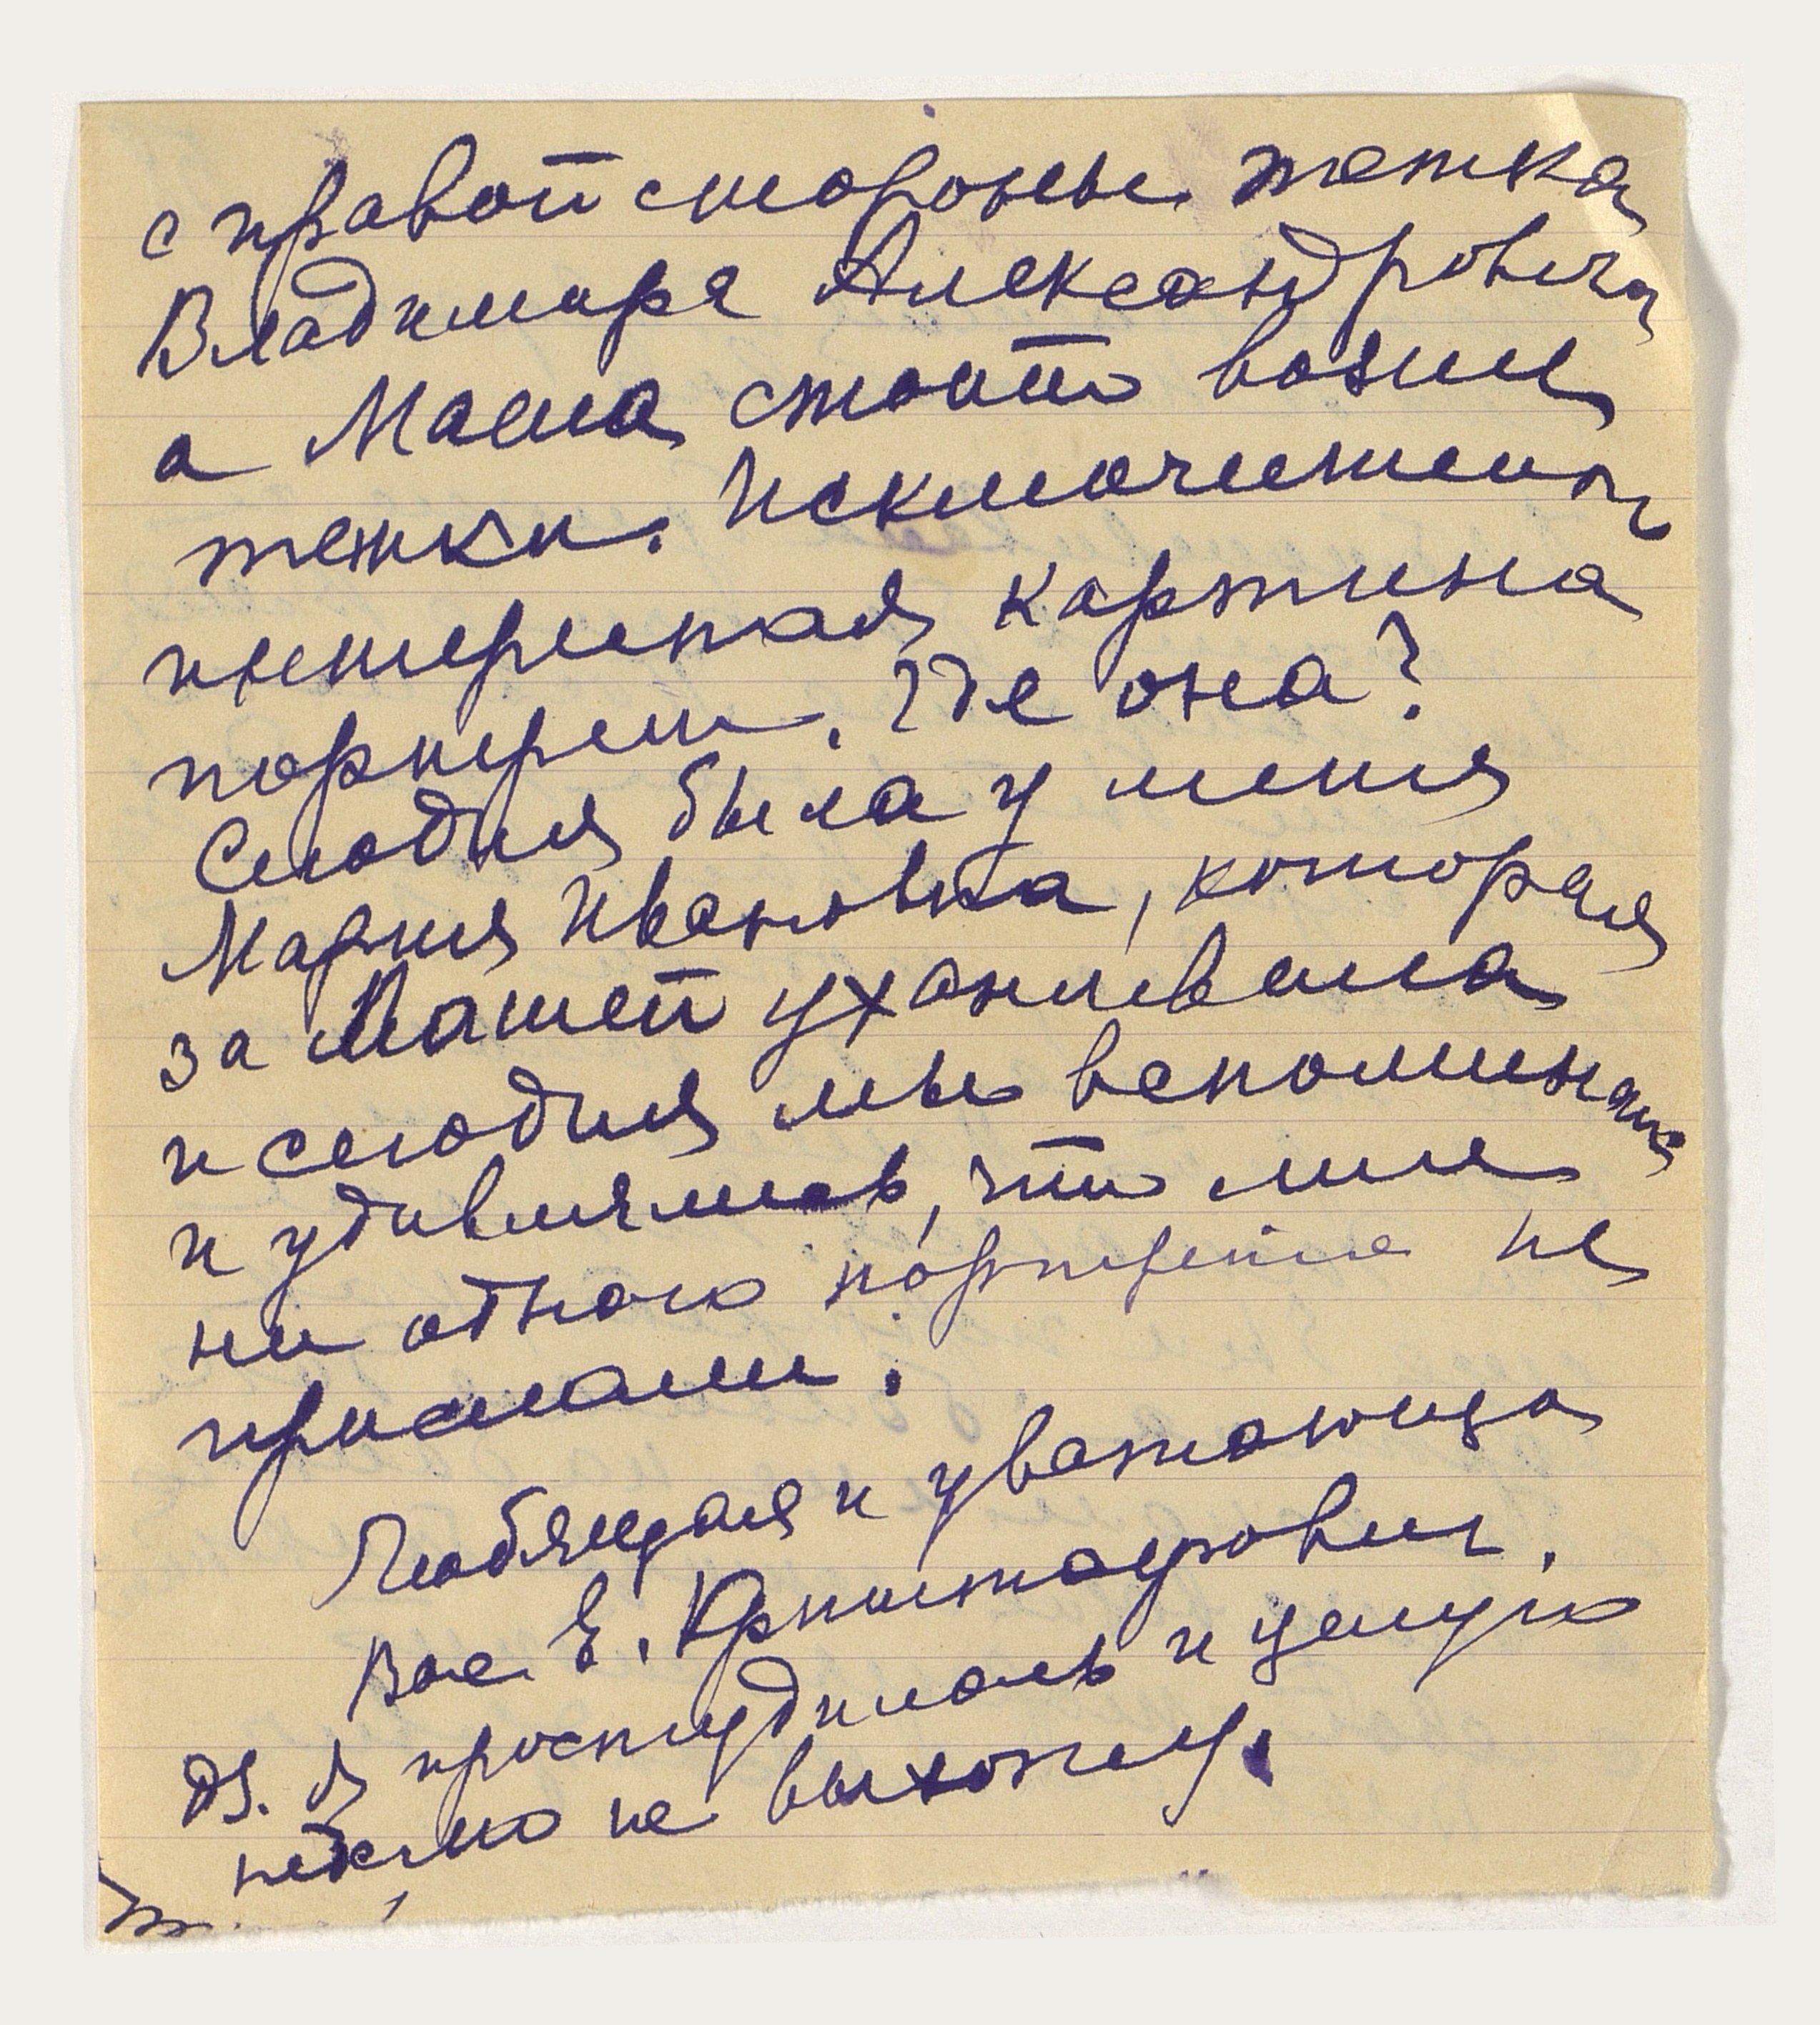 с правой стороны тетка
Владимира Александровича
а Маша стоит возле
тетки. Исключительно
интересная картина
портрет. Где она?
Сегодня была у меня
Мария Ивановна, которая
за Машей ухаживала
и сегодня мы вспоминали
и удивлялись, что мне
ни одного портрета не
прислали.
Любящая и уважающая
Вас Е. Христофорович.
Я простудилась и целую
неделю не выхожу.